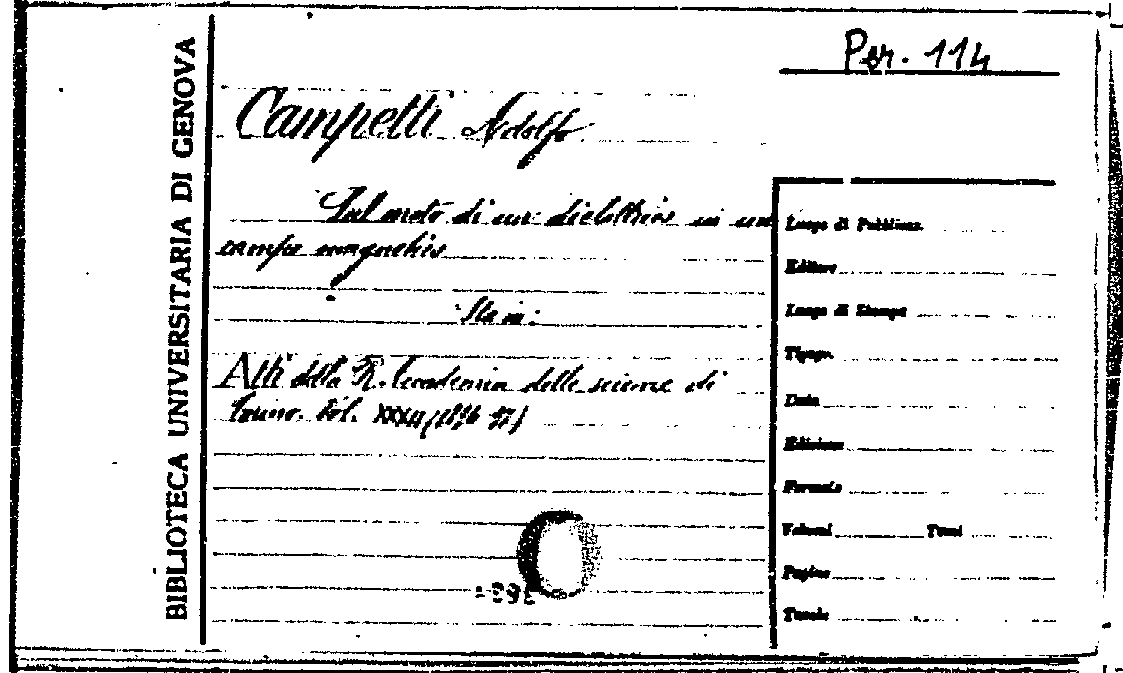 Per. 114
BIBLIOTECA UNIVERSITARIA DI GENOVA
Campetti Adolfo
Sul moto di un dielettrico in un
campo magnetico
Sta in:
Atti della R. Accademia delle scienze di
Torino. Vol. XXXII (1896-97)
Luogo di Pubblicaz.
Editore
Luogo di Stampa
Tipogr.
Data
Edizione
Formato
Volumi Tomi
Pagine
Tavole